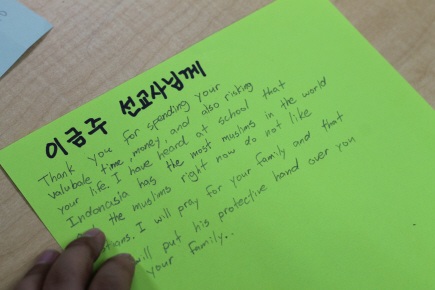 이금주 선교사님께
Thank you for spending your
valubale time, money, and also risting
your life. I have heard at school that
Indonasia has the most muslims in the world
the muslims right now do not like
I will pray for your family and that
will put his protective hand over you
your family..